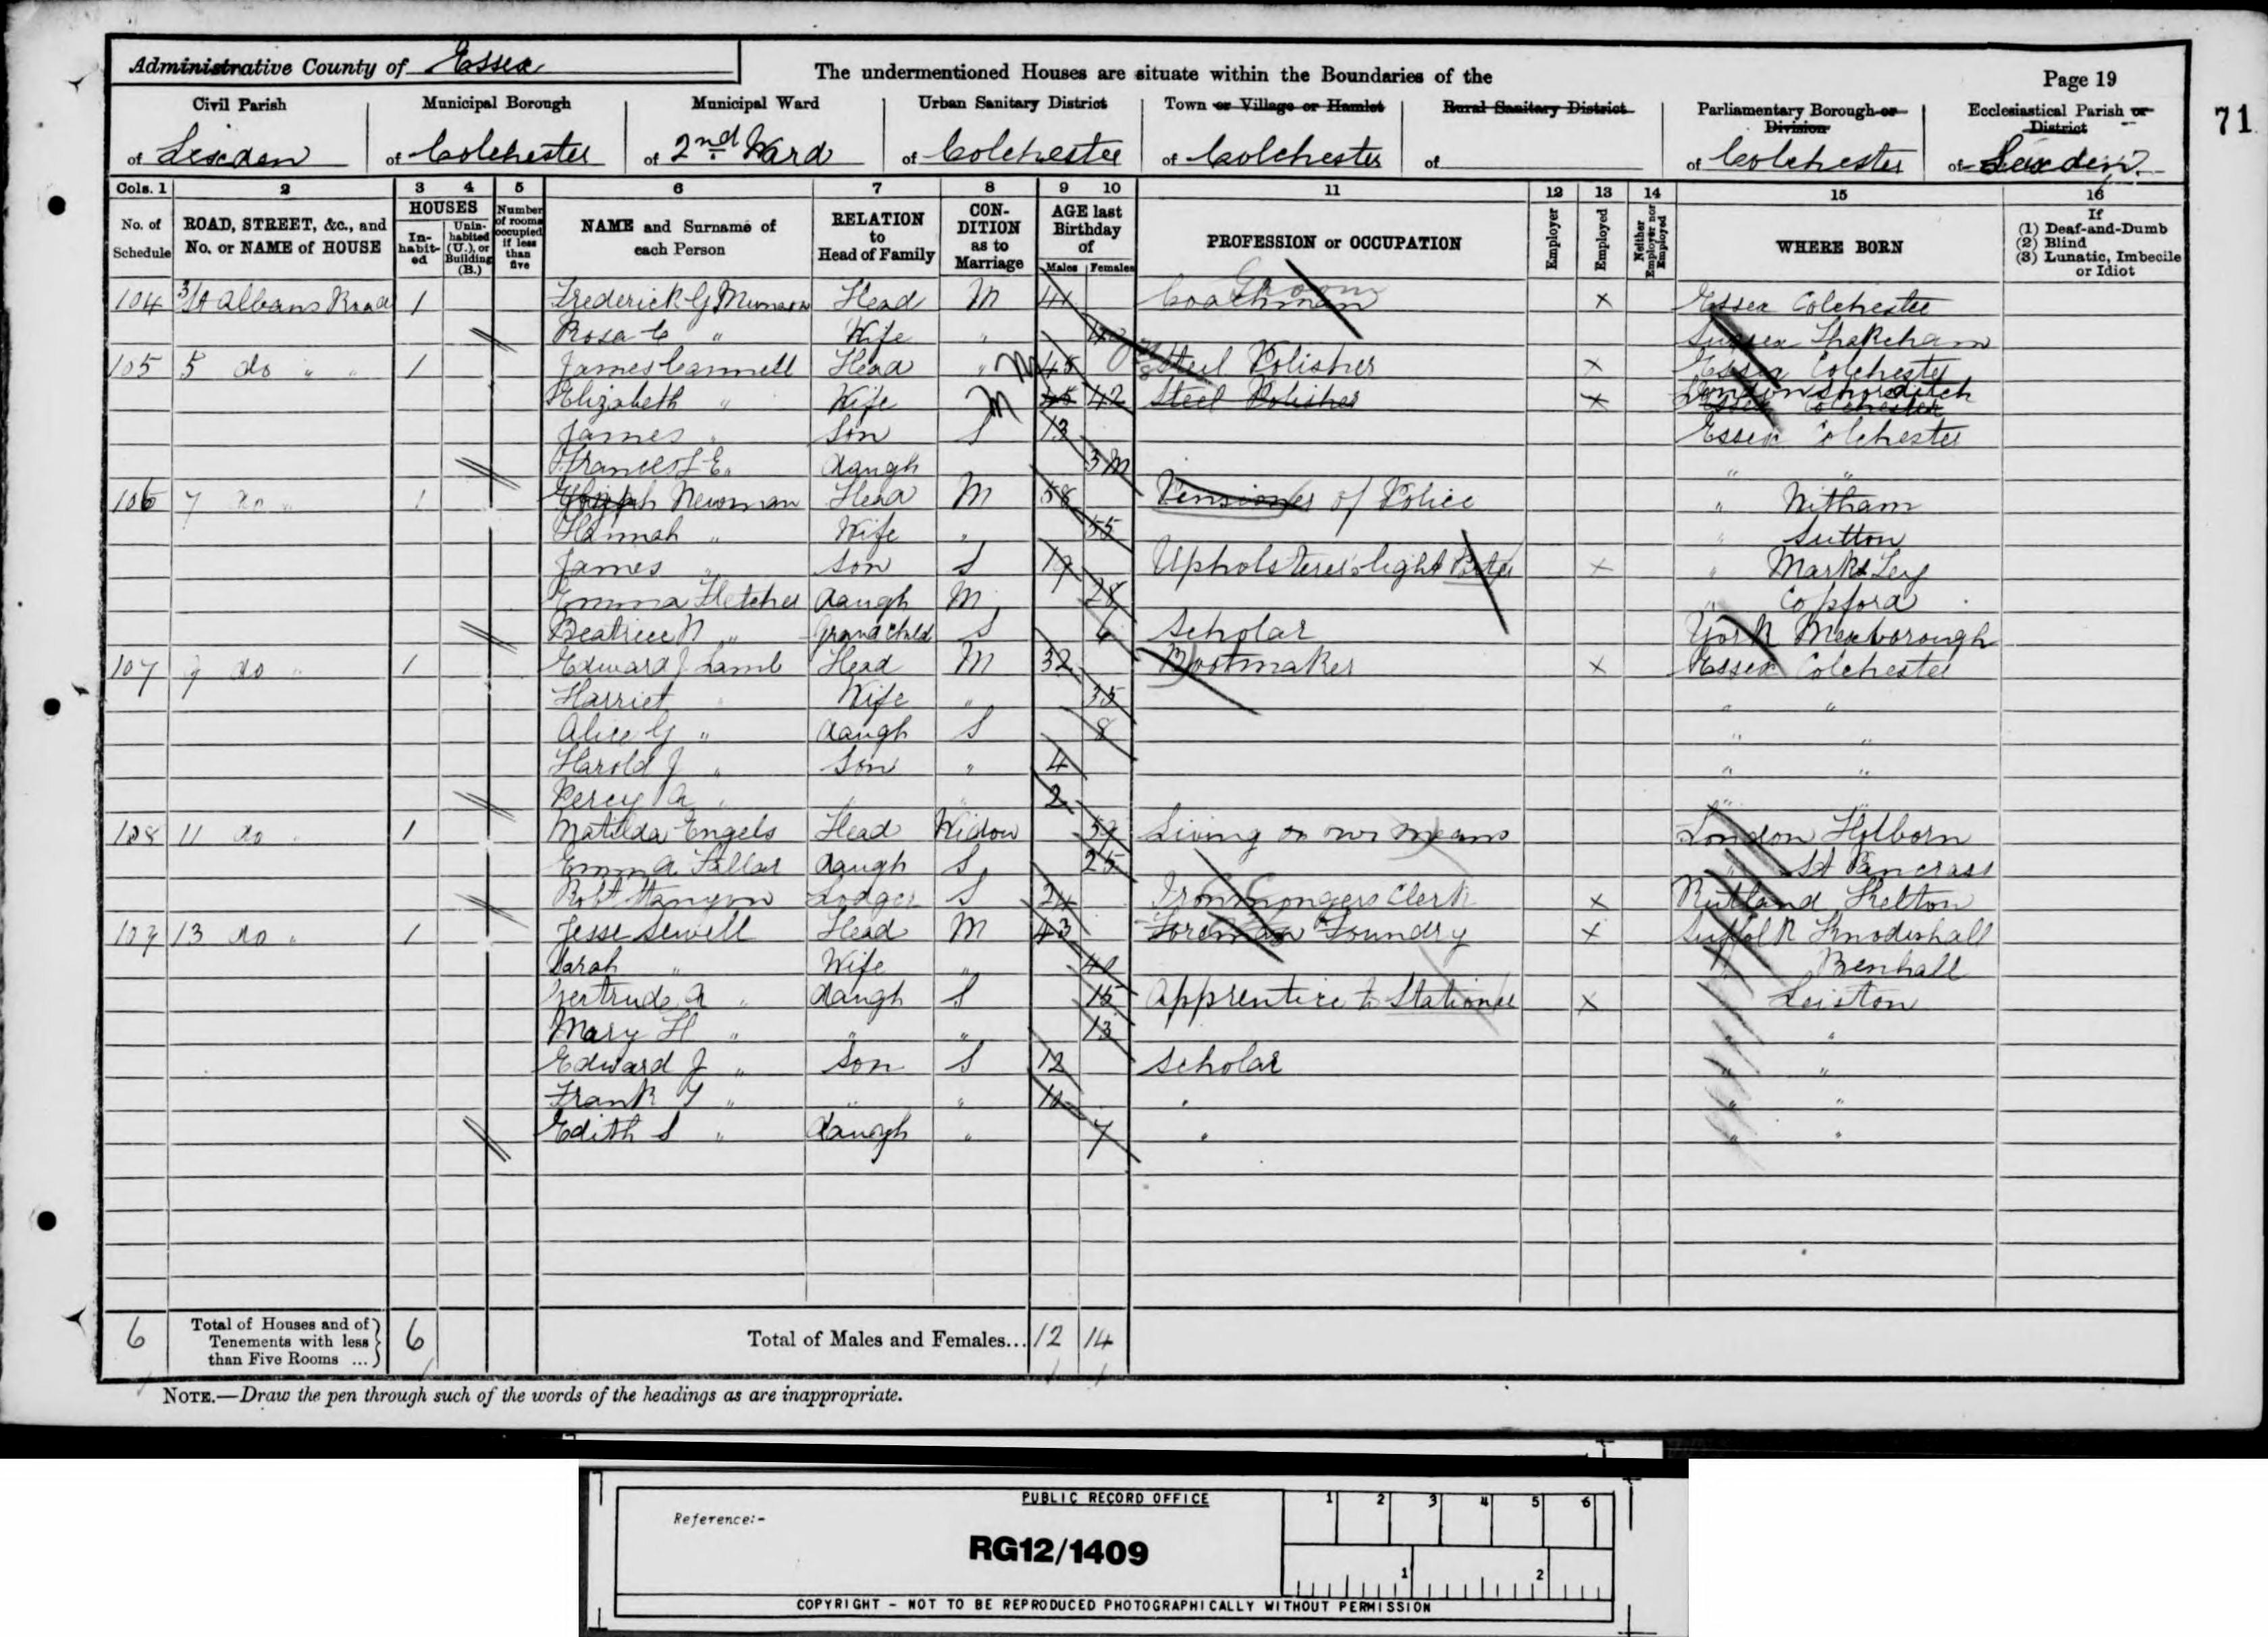 Administrative County of Essex
The undermentioned Houses are situate within the Boundaries of the
Page 19
71
Civil Parish of Lexden
Municipal Borough of Colchester
Municipal Ward of 2nd Ward
Urban Sanitary District of Colchester
Town or Village or Hamlet of Colchester
Rural Sanitary District of
Parliamentary Borough or Division of Colchester
Ecclesiastical Parish or District of Lexden
Cols. 1 2 3 4 5 6 7 8 9 10 11 12 13 14 15 16
No. of Schedule
ROAD, STREET, &c., and No. or NAME of HOUSE
HOUSES
In-habit-ed
Unin-habited (U.), or Building (B.)
Number of rooms occupied if less than five
NAME and Surname of each Person
RELATION to Head of Family
CON-DITION as to Marriage
AGE last Birthday of
Males Females
PROFESSION or OCCUPATION
Employer
Employed
Neither Employer nor Employed
WHERE BORN
If
(1) Deaf-and-Dumb
(2) Blind
(3) Lunatic, Imbecile or Idiot
104 3 St Albans Road 1 Frederick G Munson Head M 41 Coachman Groom x Essex Colchester
Rosa C " Wife " Sussex Thakeham
105 5 do " " 1 James Cannell Head " M 45 Steel Polisher x Essex Colchester
Elizabeth " Wife M 45 42 Steel Polisher x London Shoreditch Essex Colchester
James " Son S 13 Essex Colchester
Frances L E. daugh 3m " "
106 7 do " 1 Joseph Newman Head M 58 Pensioner of Police " Witham
Hannah " Wife " 55 " Sutton
James " Son S 19 Upholsterer's light Porter x " Marks Tey
Emma Fletcher daugh M 28 " Copford
Beatrice N " Grand Child S 6 Scholar York Mexborough
107 9 do " 1 Edward J Lamb Head M 32 Bootmaker x Essex Colchester
Harriet " Wife " 35 " "
Alice G " daugh S 8 " "
Harold J " Son " 4 " "
Percy A " " " 2 " "
108 11 do " 1 Matilda Engels Head Widow 59 Living on own means London Holborn
Emma daugh S 25 " St Pancrass
Robt Lodger S 24 Ironmongers Clerk x Rutland Ketton
109 13 do " 1 Jesse Sewell Head M 43 Foreman Foundry x Suffolk Knodishall
Sarah " Wife " 40 " Benhall
Gertrude A " daugh S 15 Apprentice to Stationer x Leiston
Mary H " " " 13 "
Edward J " Son S 12 Scholar " "
Frank T " " " 10 " " "
Edith S " daugh " 7 " " "
6 Total of Houses and of Tenements with less than Five Rooms ... 6 Total of Males and Females... 12 14
NOTE.—Draw the pen through such of the words of the headings as are inappropriate.
PUBLIC RECORD OFFICE
1 2 3 4 5 6
Reference:-
RG12/1409
1 2
COPYRIGHT - NOT TO BE REPRODUCED PHOTOGRAPHICALLY WITHOUT PERMISSION